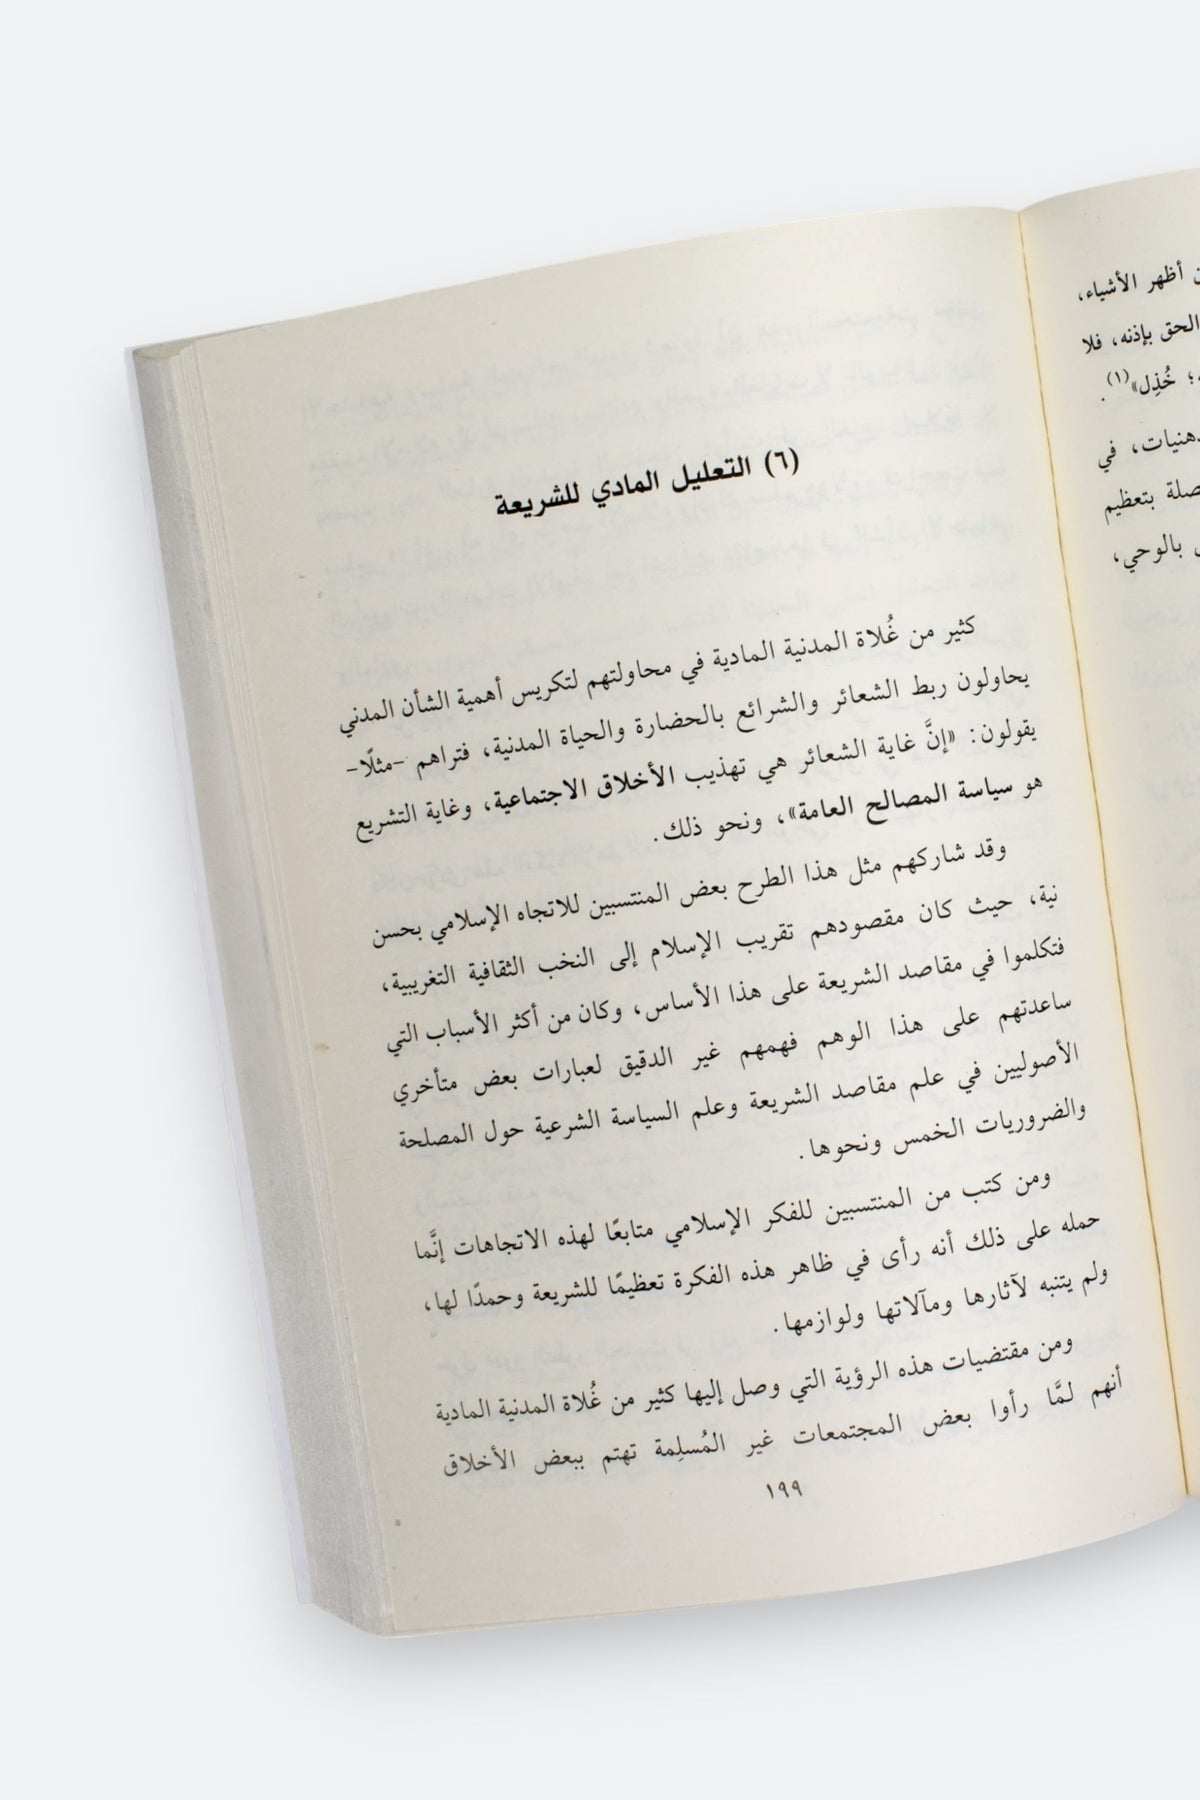 ن أظهر الأشياء،
الحق بإذنه، فلا
؛ خُذِل»(١).
هنيات، في
صلة بتعظيم
بالوحي،
(٦) التعليل المادي للشريعة
كثير من غُلاة المدنية المادية في محاولتهم لتكريس أهمية الشأن المدني
يحاولون ربط الشعائر والشرائع بالحضارة والحياة المدنية، فتراهم -مثلًا-
يقولون: «إنَّ غاية الشعائر هي تهذيب الأخلاق الاجتماعية، وغاية التشريع
هو سياسة المصالح العامة»، ونحو ذلك.
وقد شاركهم مثل هذا الطرح بعض المنتسبين للاتجاه الإسلامي بحسن
نية، حيث كان مقصودهم تقريب الإسلام إلى النخب الثقافية التغريبية،
فتكلموا في مقاصد الشريعة على هذا الأساس، وكان من أكثر الأسباب التي
ساعدتهم على هذا الوهم فهمهم غير الدقيق لعبارات بعض متأخري
الأصوليين في علم مقاصد الشريعة وعلم السياسة الشرعية حول المصلحة
والضروريات الخمس ونحوها.
ومن كتب من المنتسبين للفكر الإسلامي متابعًا لهذه الاتجاهات إنَّما
حمله على ذلك أنه رأى في ظاهر هذه الفكرة تعظيمًا للشريعة وحمدًا لها،
ولم يتنبه لآثارها ومآلاتها ولوازمها.
ومن مقتضيات هذه الرؤية التي وصل إليها كثير من غُلاة المدنية المادية
أنهم لمَّا رأوا بعض المجتمعات غير المُسلِمة تهتم ببعض الأخلاق
١٩٩